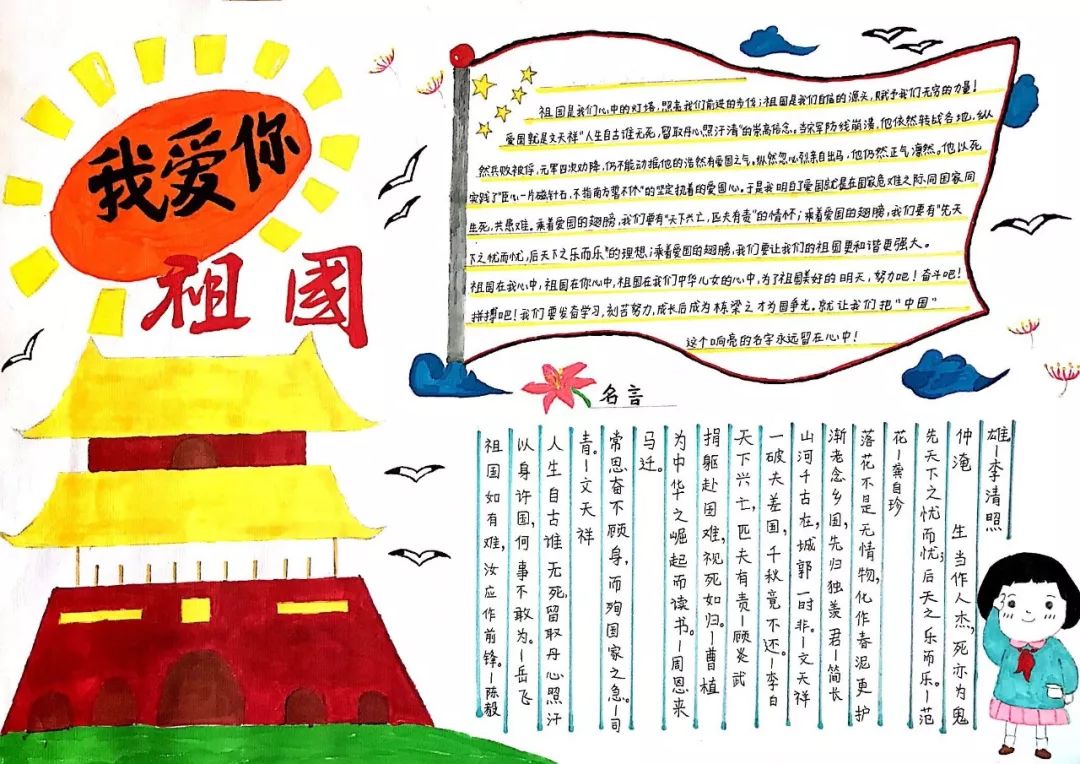 我爱你
祖國
祖国是我们心中的灯塔,照亮我们前进的步伐;祖国是我们自信的源天,赋予我们无穷的力量!
爱国就是文天祥"人生自古谁无死,留取丹心照汗清"的崇高信念。当宋军防线崩溃,他依然转战各地,纵
然兵败被俘,元军四次劝降,仍不能动摇他的浩然有爱国之气。纵然忽必烈亲自出马,他仍然正气凛然。他以死
实践了"臣心一片磁针石,不指南方誓不休"的坚定执着的爱国心。于是我明白了爱国就是在国家危难之际,同国家同
生死,共患难。乘着爱国的翅膀,我们要有"天下兴亡,匹夫有责"的情怀;乘着爱国的翅膀,我们要有"先天
下之忧而忧,后天下之乐而乐"的理想;乘着爱国的翅膀,我们要让我们的祖国更和谐更强大。
祖国在我心中,祖国在你心中,祖国在我们中华儿女的心中,为了祖国美好的明天,努力吧!奋斗吧!
拼搏吧!我们要发奋学习,刻苦努力,成长后成为栋梁之才为国争光。就让我们把"中国"
这个响亮的名字永远留在心中!
名言
祖国如有难,汝应作前锋。—陈毅
以身许国,何事不敢为。—岳飞
人生自古谁无死,留取丹心照汗
青。—文天祥
常思奋不顾身,而殉国家之急。—司
马迁。
为中华之崛起而读书。—周恩来
捐躯赴国难,视死如归。—曹植
天下兴亡,匹夫有责—顾炎武
一破夫差国,千秋竟不还。—李白
山河千古在,城郭一时非。—文天祥
渐老念乡国,先归独羡君—简长
落花不是无情物,化作春泥更护
花—龚自珍
先天下之忧而忧;后天之乐而乐。—范
仲淹 生当作人杰,死亦为鬼
雄—李清照